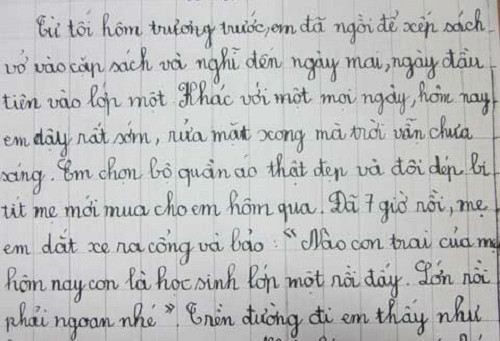 Từ tối hôm trương trước, em đã ngồi để xếp sách
vở vào cặp sách và nghĩ đến ngày mai, ngày đầu
tiên vào lớp một Khác với một mọi ngày, hôm nay
em dây rất sớm, rửa mặt xong mà trời vẫn chưa
sáng. Em chọn bộ quần áo thật đẹp và đôi dép bi
tít mẹ mới mua cho em hôm qua. Đã 7 giờ rồi, mẹ
em dắt xe ra cổng và bảo: "Nào con trai của mẹ
hôm nay con là học sinh lớp một rồi đấy. Lớn rồi
phải ngoan nhé". Trên đường đi em thấy như